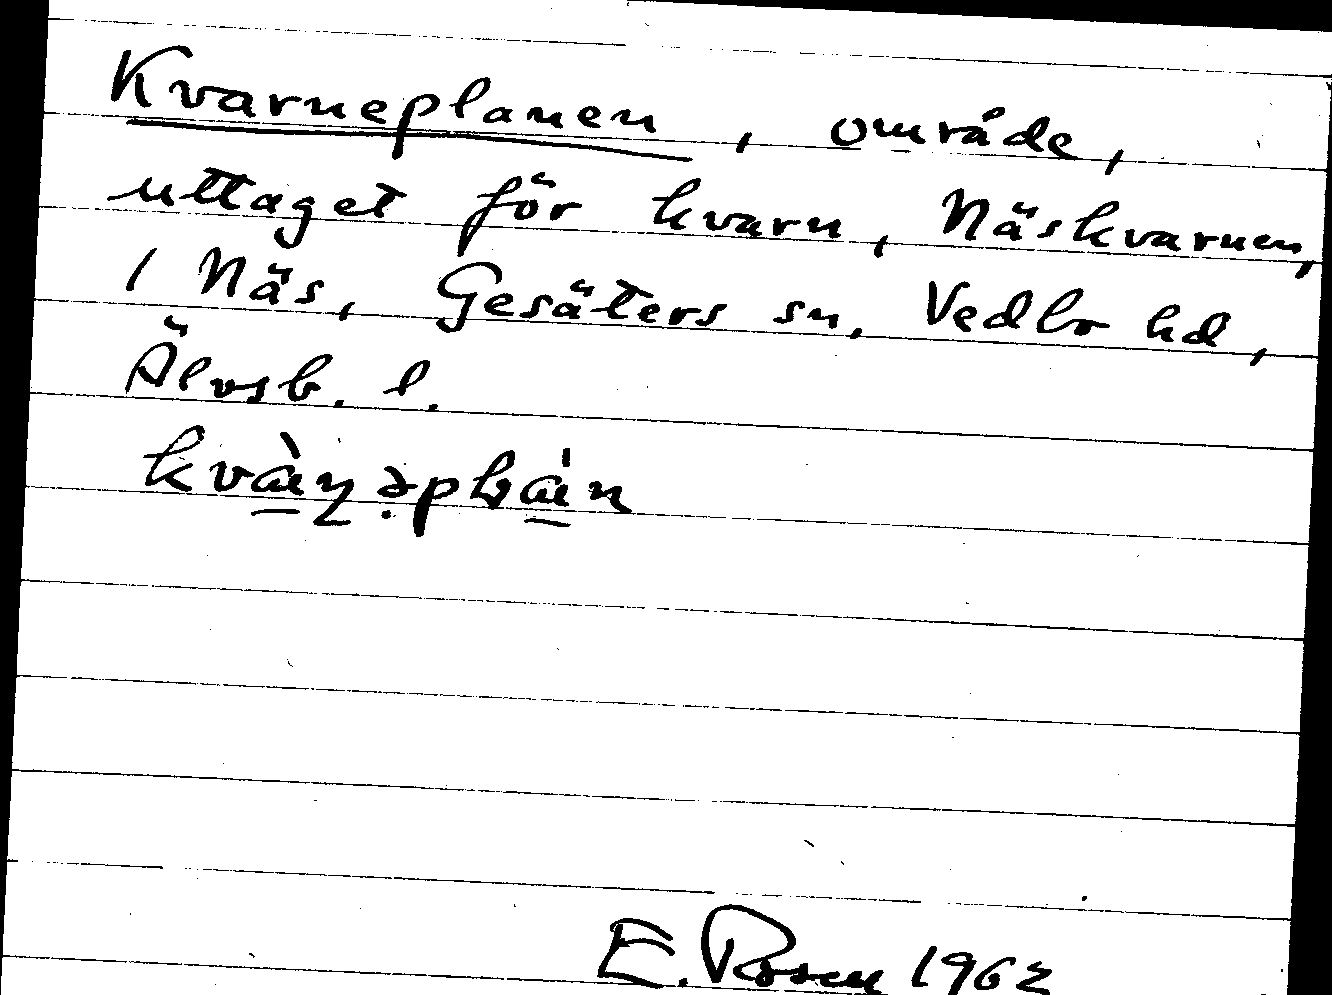 Kvarneplanen, område,
uttaget för kvarn, Näskvarnen,
i Näs, Gesäters sn, Vedbo hd,
Älvsb. l.
kvàɳəpɫán
E. Rosen 1962